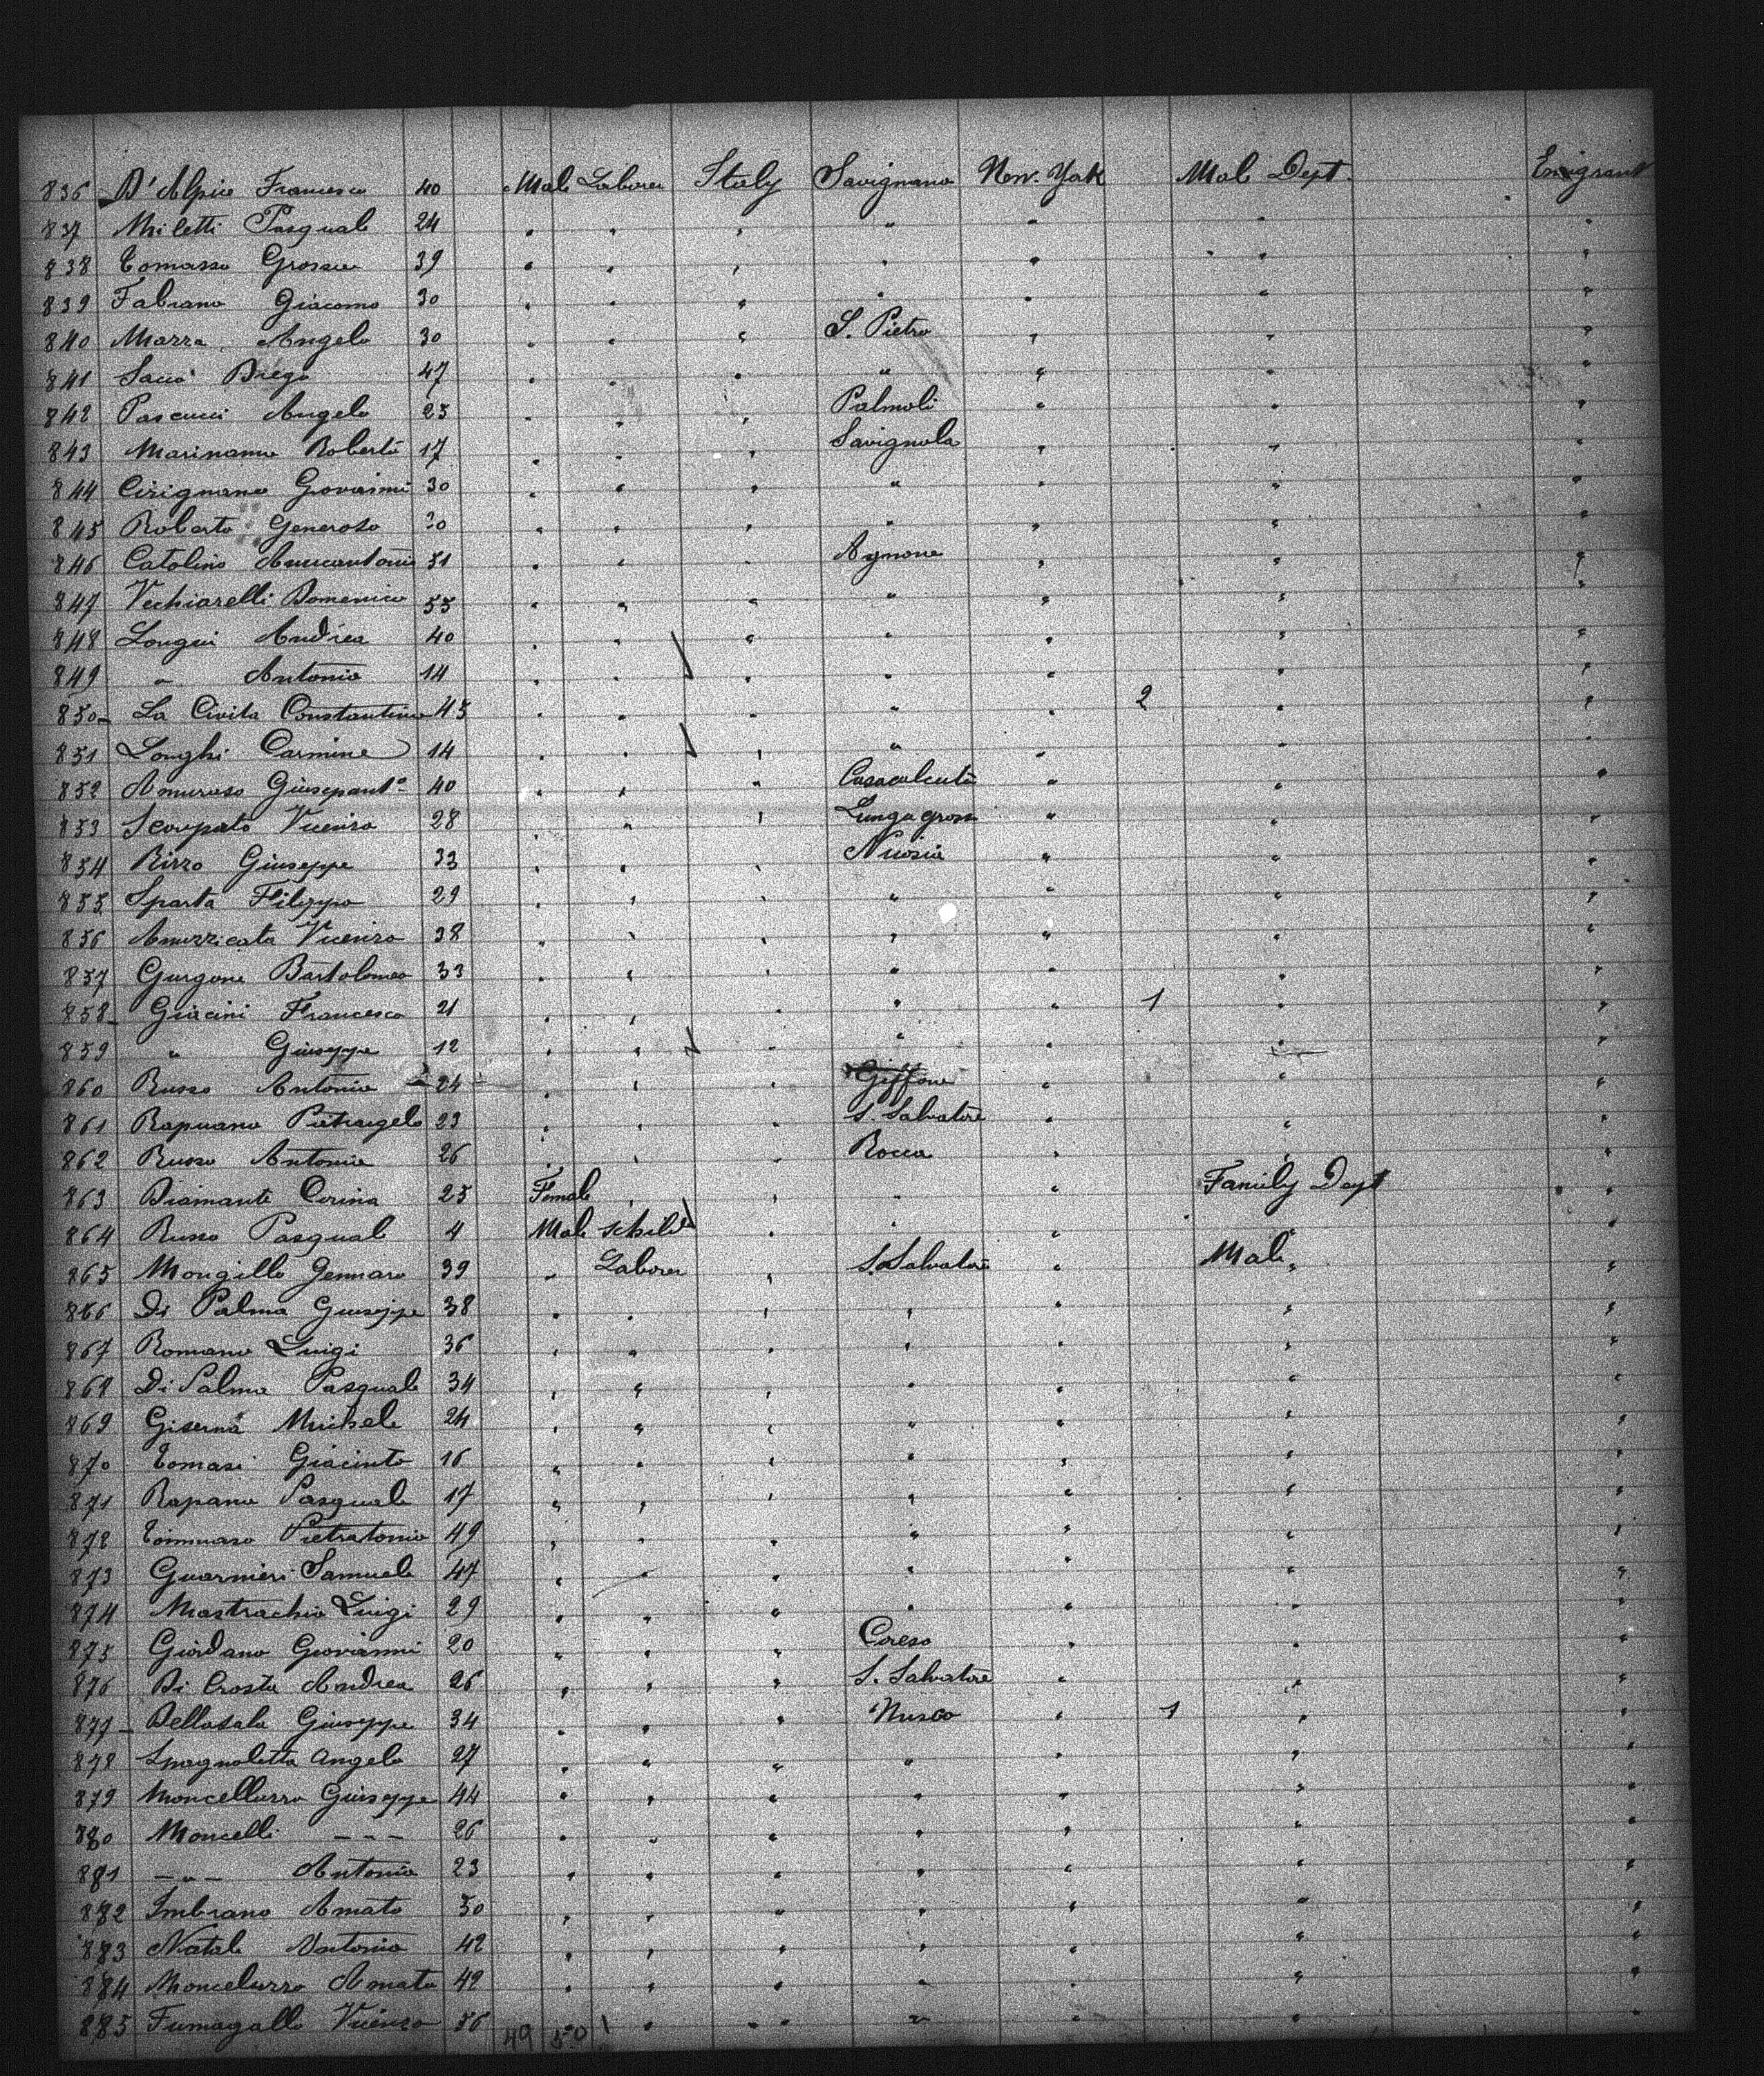 836 D'Alpio Francesco 40 Male Laborer Italy Savignano New-York Male Dept. Emigrant
837 Miletti Pasquale 24 " " " " " " "
838 Tomasso Grosso 39 " " " " " " "
839 Fabiano Giacomo 30 " " " " " " "
840 Mazza Angelo 30 " " " S. Pietro " " "
841 Sacco Diego 47 " " " " " " "
842 Pascucci Angelo 25 " " " Palmoli " " "
843 Marinanno Roberto 17 " " " Savignola " " "
844 Cirignano Giovanni 30 " " " " " " "
845 Roberto Generoso 30 " " " " " " "
846 Catolino 51 " " " Agnone " " "
847 Vechiarelli Domenico 55 " " " " " " "
848 Longui Andrea 40 " " " " " " "
849 " Antonio 14 " " " " " " "
850 - La Civita Constantino 45 " " " " " 2 " "
851 Longhi Carmine 14 " " " " " " "
852 Amuruso Giusepant.o 40 " " " Casacalenta " " "
853 Scarpato Vicenzo 28 " " " Lungagrossa " " "
854 Rizzo Giuseppe 33 " " " Nicosia " " "
855 Sparta Filippo 29 " " " " " " "
856 Amuzzicata Vicenzo 38 " " " " " " "
857 Gurgone Bartolomeo 33 " " " " " " "
858 - Giacini Francesco 21 " " " " " 1 " "
859 " Giuseppe 12 " " " " " " "
860 Russo Antonio 24 " " " Giffone " " "
861 Rapuano Pietrangelo 23 " " " S. Salvatore " " "
862 Russo Antonio 26 " " " Rocca " " "
863 Diamante Cerina 25 Female " " " " Family Dept "
864 Russo Pasquale 4 Male schild " " " " "
865 Mongillo Gennaro 39 " Laborer " S. Salvatore " Male "
866 Di Palma Giuseppe 38 " " " " " " "
867 Romano Luigi 36 " " " " " " "
868 Di Palma Pasquale 34 " " " " " " "
869 Giserna Michele 24 " " " " " " "
870 Tomasi Giacinto 16 " " " " " " "
871 Rapano Pasquale 17 " " " " " " "
872 Tommaso Pietratonio 49 " " " " " " "
873 Guarnieri Samuele 47 " " " " " " "
874 Mastrachio Luigi 29 " " " " " " "
875 Giordano Giovanni 20 " " " Cireso " " "
876 Di Crosta Andrea 26 " " " S. Salvatore " " "
877 - Dellasala Giuseppe 34 " " " Nusco " 1 " "
878 Spagnoletta Angelo 27 " " " " " " "
879 Moncellurzo Giuseppe 44 " " " " " " "
880 Moncelli - - - 26 " " " " " " "
881 - " - Antonio 23 " " " " " " "
882 Imbrano Amato 50 " " " " " " "
883 Natale Antonio 42 " " " " " " "
884 Moncelurzo Amato 42 " " " " " " "
885 Fumagallo Vicenzo 56 " " " " " "
49 50 1